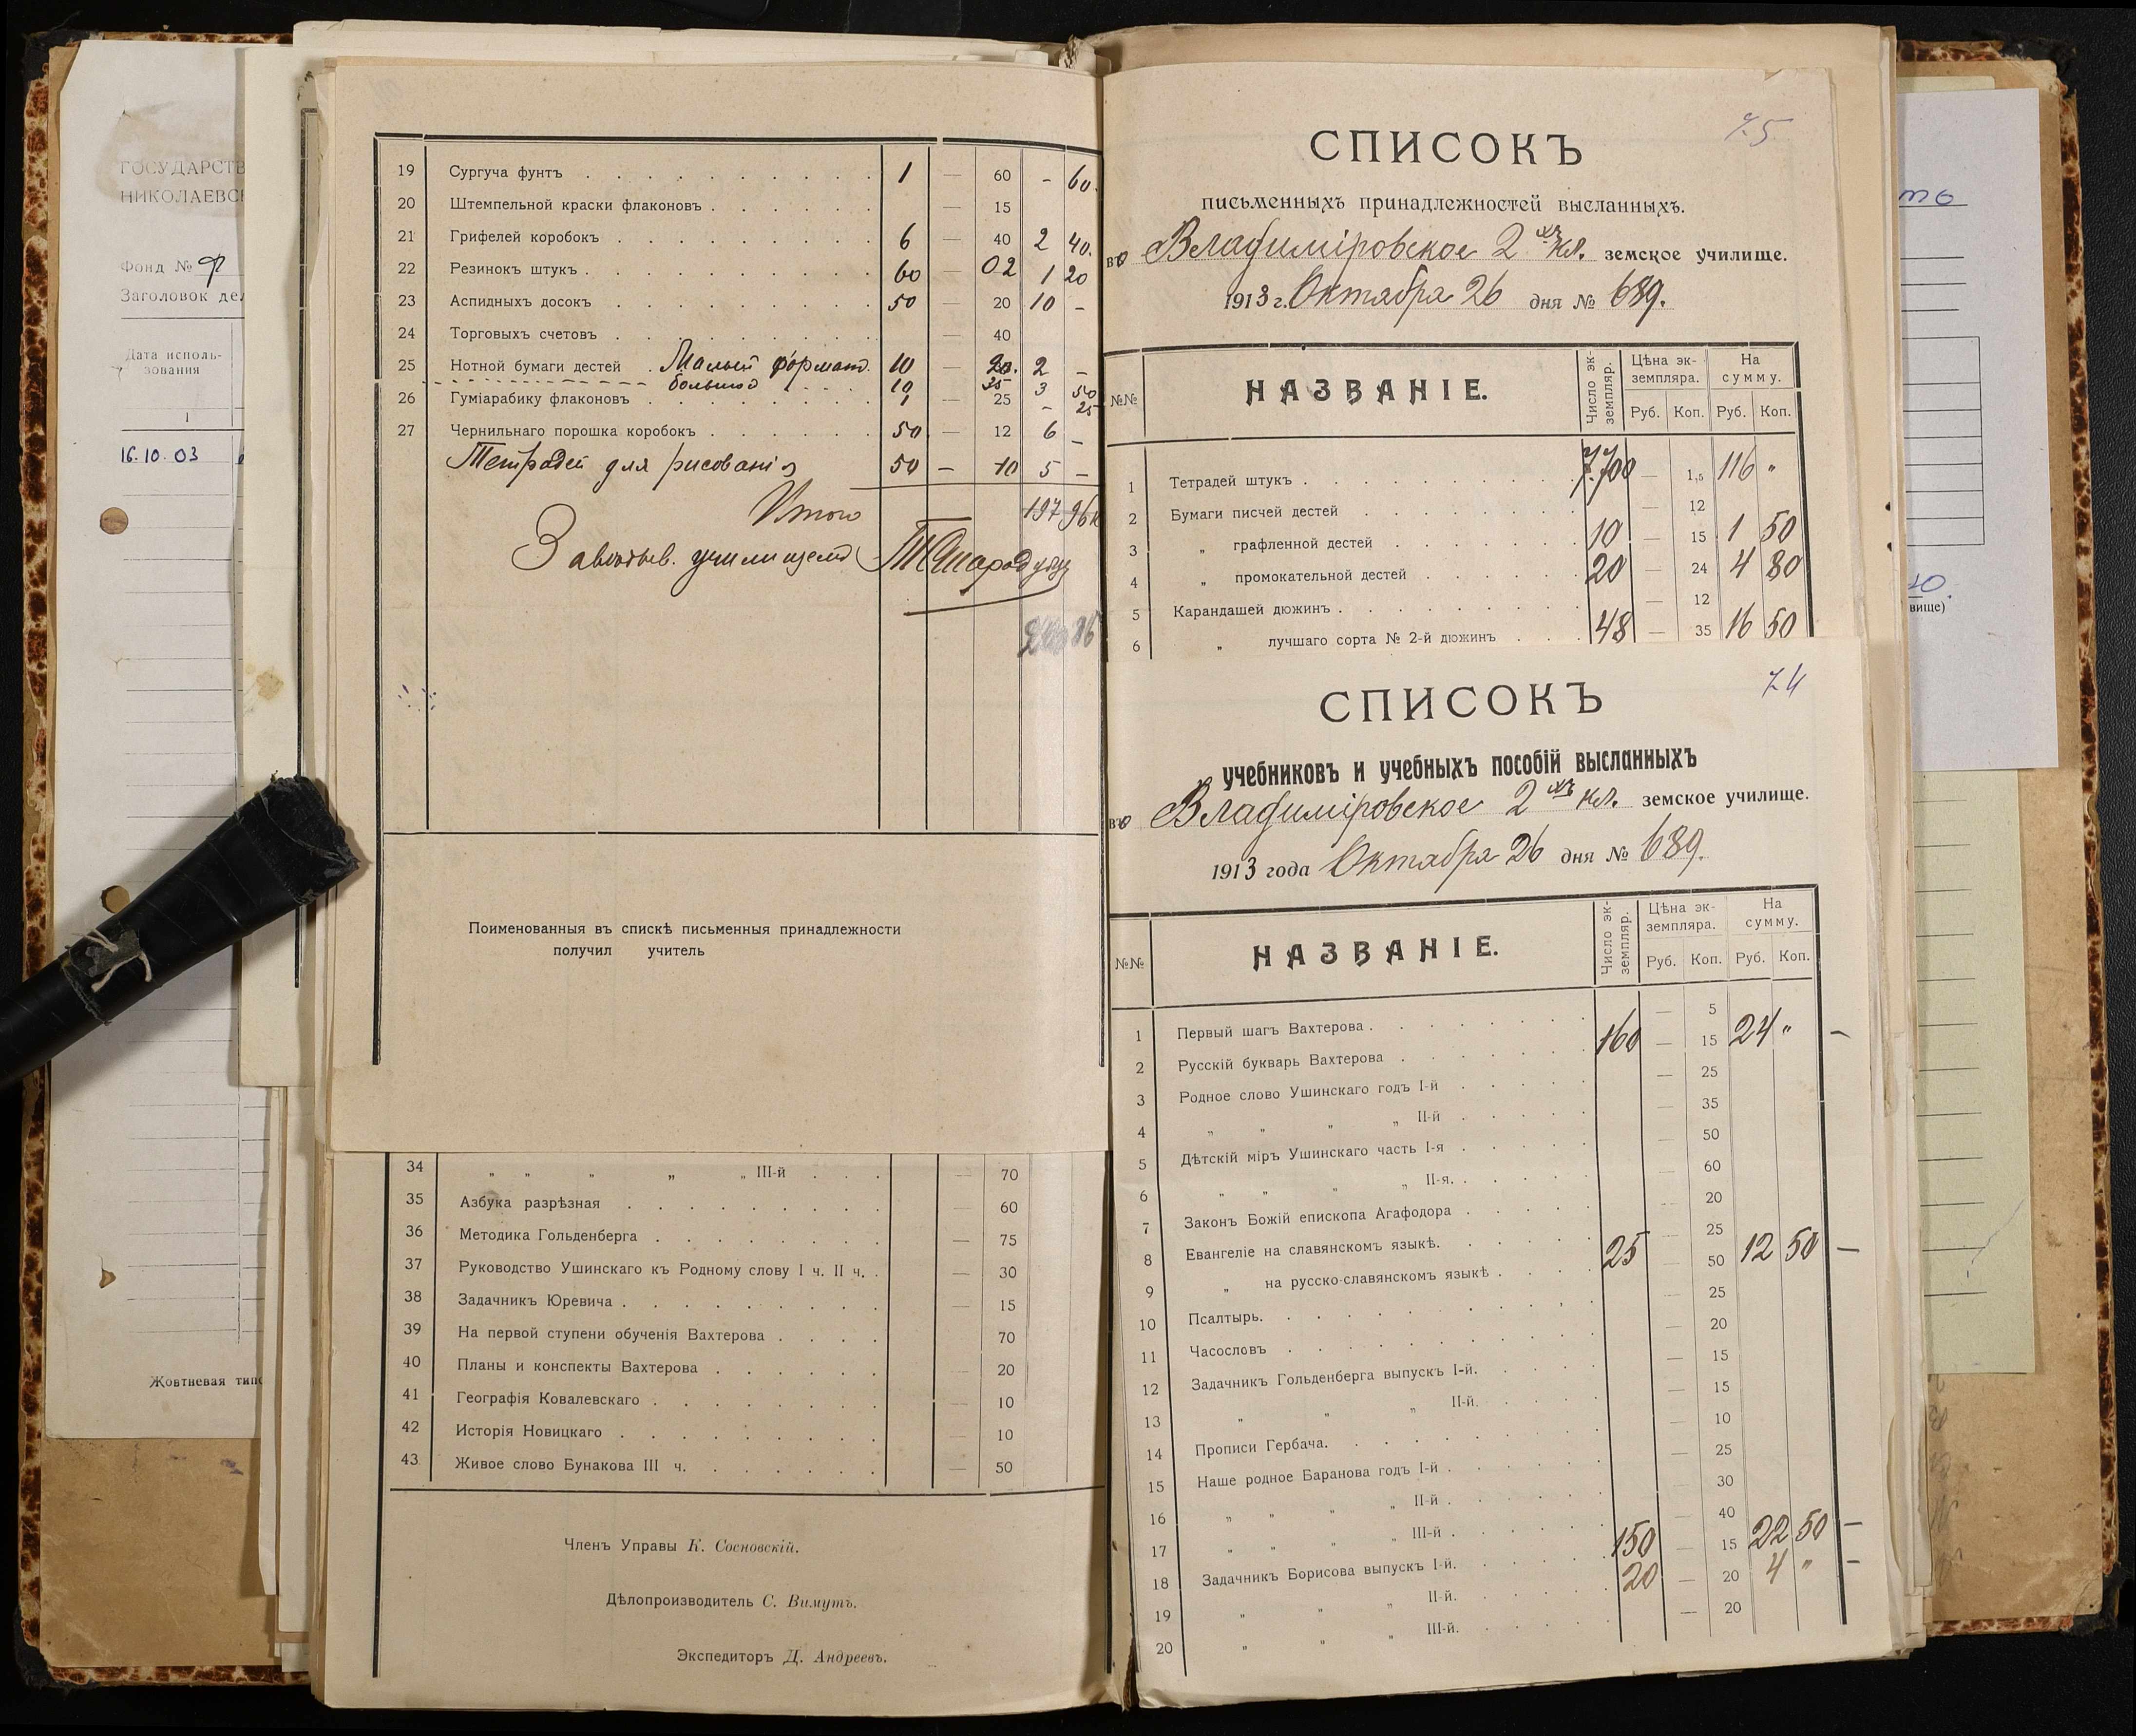 ГОСУДАРСТВ
НИКОЛАЕВС
Фонд №
Заголовок де
Дата исполь-
зования
1
16.10.03
Жовтневая тип
19 Сургуча фунтъ 1 — 60 - 60.
20 Штемпельной краски флаконовъ — 15
21 Грифелей коробокъ 6 — 40 2 40.
22 Резинокъ штукъ 60 — 02 1 20
23 Аспидныхъ досокъ 50 — 20 10 -
24 Торговыхъ счетовъ — 40
25 Нотной бумаги дестей Малый формат. 10 — 20. 2 -
большо 10 35 3 50
26 Гуміарабику флаконовъ 1 — 25 - 25
27 Чернильнаго порошка коробокъ 50 — 12 6 -
Тетрадей для рисованія 50 - 10 5 -
Итого 197 96к
Завѣдыв. училищемъ
86
Поименованныя въ спискѣ письменныя принадлежности
получил учитель
34 „ „ „ „ „ III-й — 70
35 Азбука разрѣзная — 60
36 Методика Гольденберга — 75
37 Руководство Ушинскаго къ Родному слову I ч. II ч. — 30
38 Задачникъ Юревича — 15
39 На первой ступени обученія Вахтерова 70
40 Планы и конспекты Вахтерова — 20
41 Географія Ковалевскаго — 10
42 Исторія Новицкаго — 10
43 Живое слово Бунакова III ч. — 50
Членъ Управы К. Сосновскій.
Дѣлопроизводитель С. Вимутъ.
Экспедиторъ Д. Андреевъ.
75
СПИСОКЪ
письменныхъ принадлежностей высланныхъ.
во Владиміровское 2 хъ кл. земское училище.
1913 г. Октября 26 дня № 689.
№№ НАЗВАНІЕ. Число эк-земпляр. Цѣна эк-земпляра. На сумму.
Руб. Коп. Руб. Коп.
1 Тетрадей штукъ 7.700 — 1,5 116 „
2 Бумаги писчей дестей — 12
3 „ графленной дестей 10 — 15 1 50
4 „ промокательной дестей 20 — 24 4 80
5 Карандашей дюжинъ — 12
6 „ лучшаго сорта № 2-й дюжинъ 48 — 35 16 50
74
СПИСОКЪ
учебниковъ и учебныхъ пособій высланныхъ
во Владиміровское 2 хъ кл. земское училище.
1913 года Октября 26 дня № 689.
№№ НАЗВАНІЕ. Число эк-земпляр. Цѣна эк-земпляра. На сумму.
Руб. Коп. Руб. Коп.
1 Первый шагъ Вахтерова — 5
2 Русскій букварь Вахтерова 160 — 15 24 „ —
3 Родное слово Ушинскаго годъ I-й — 25
4 „ „ „ „ II-й — 35
5 Дѣтскій міръ Ушинскаго часть I-я — 50
6 „ „ „ „ II-я. — 60
7 Законъ Божій епископа Агафодора — 20
8 Евангеліе на славянскомъ языкѣ. — 25
9 „ на русско-славянскомъ языкѣ 25 — 50 12 50 —
10 Псалтырь. — 25
11 Часословъ — 20
12 Задачникъ Гольденберга выпускъ I-й. — 15
13 „ „ „ II-й. — 15
14 Прописи Гербача. — 10
15 Наше родное Баранова годъ I-й — 25
16 „ „ „ II-й — 30
17 „ „ „ „ III-й — 40
18 Задачникъ Борисова выпускъ I-й. 150 — 15 22 50 —
19 „ „ „ II-й. 20 — 20 4 „ —
20 „ „ „ III-й. — 20
вище)